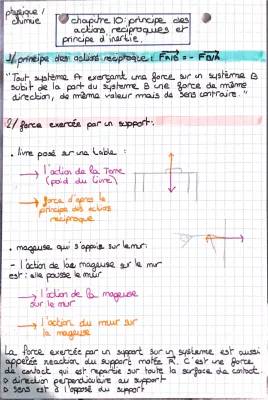 physique /
chimie
chapitre 10: principe des
actions réciproques et
principe d'inertie.
1/ principe des actions réciproque : FA/B = - FB/A
"Tout système A exerçant une force sur un système B
subit de la part du système B une force de même
direction, de même valeur mais de sens contraire."
2/ force exercée par un support:
. livre posé sur une table :
→ l'action de la Terre
(poid du livre)
→ force d'après le
principe des actions
réciproque
. nageuse qui s'appuie sur le mur:
- l'action de la nageuse sur le mur
est : elle pousse le mur
→ l'action de la nageuse
sur le mur
→ l'action du mur sur
la nageuse
La force exercée par un support sur un système est aussi
appelée réaction du support notée R. C'est une force
de contact qui est répartie sur toute la surface de contact.
▷ direction perpendiculaire au support
▷ sens est à l'opposé du support